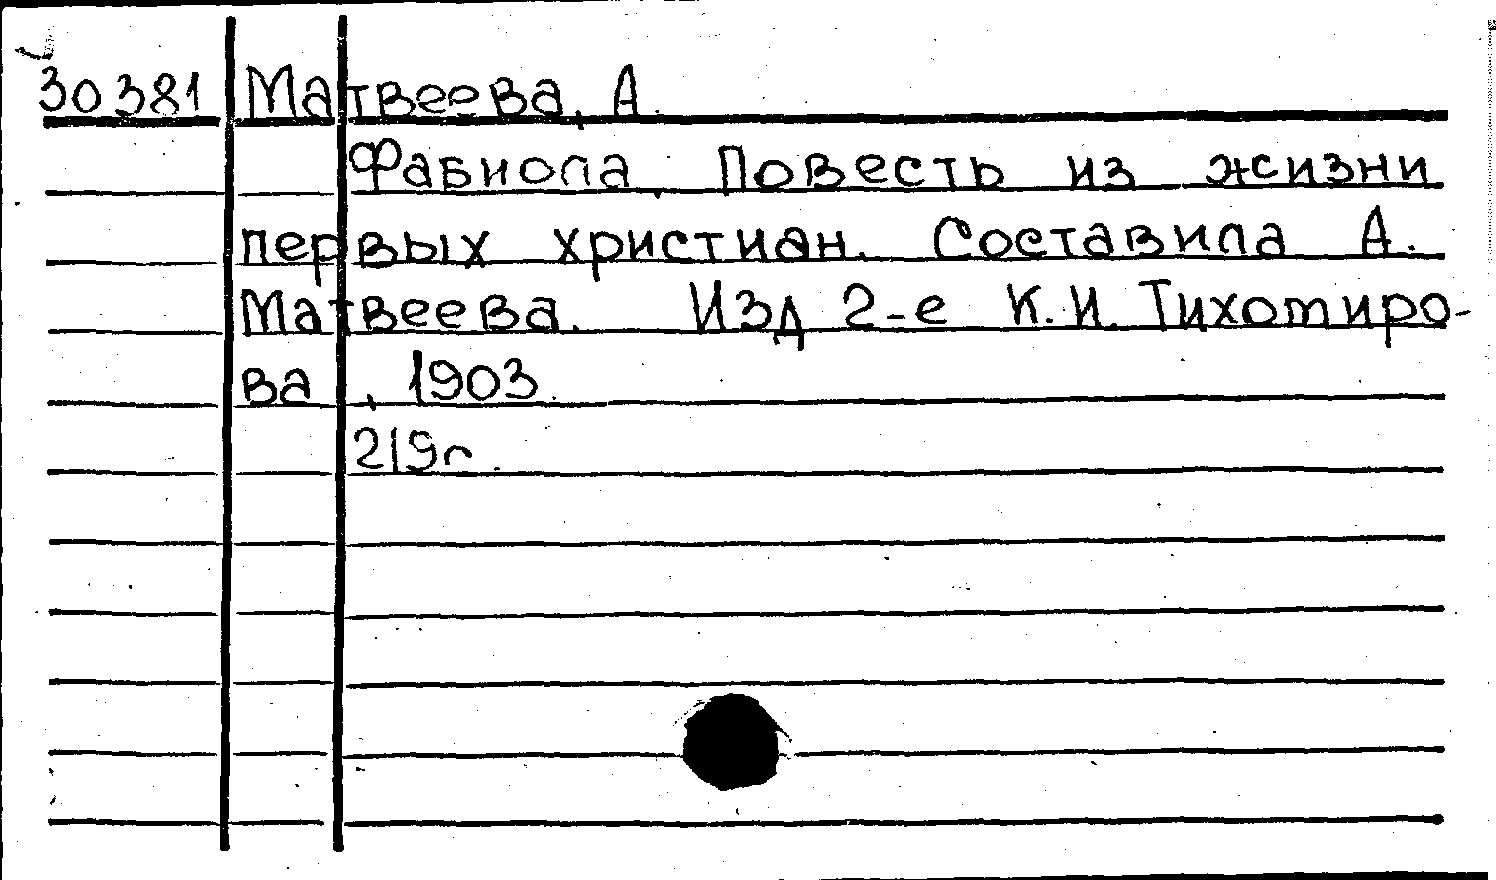 30381 Матвеева, А.
Фабиола. Повесть из жизни
первых христиан. Составила А.
Матвеева. Изд 2-е К.И. Тихомиро-
ва, 1903.
219с.